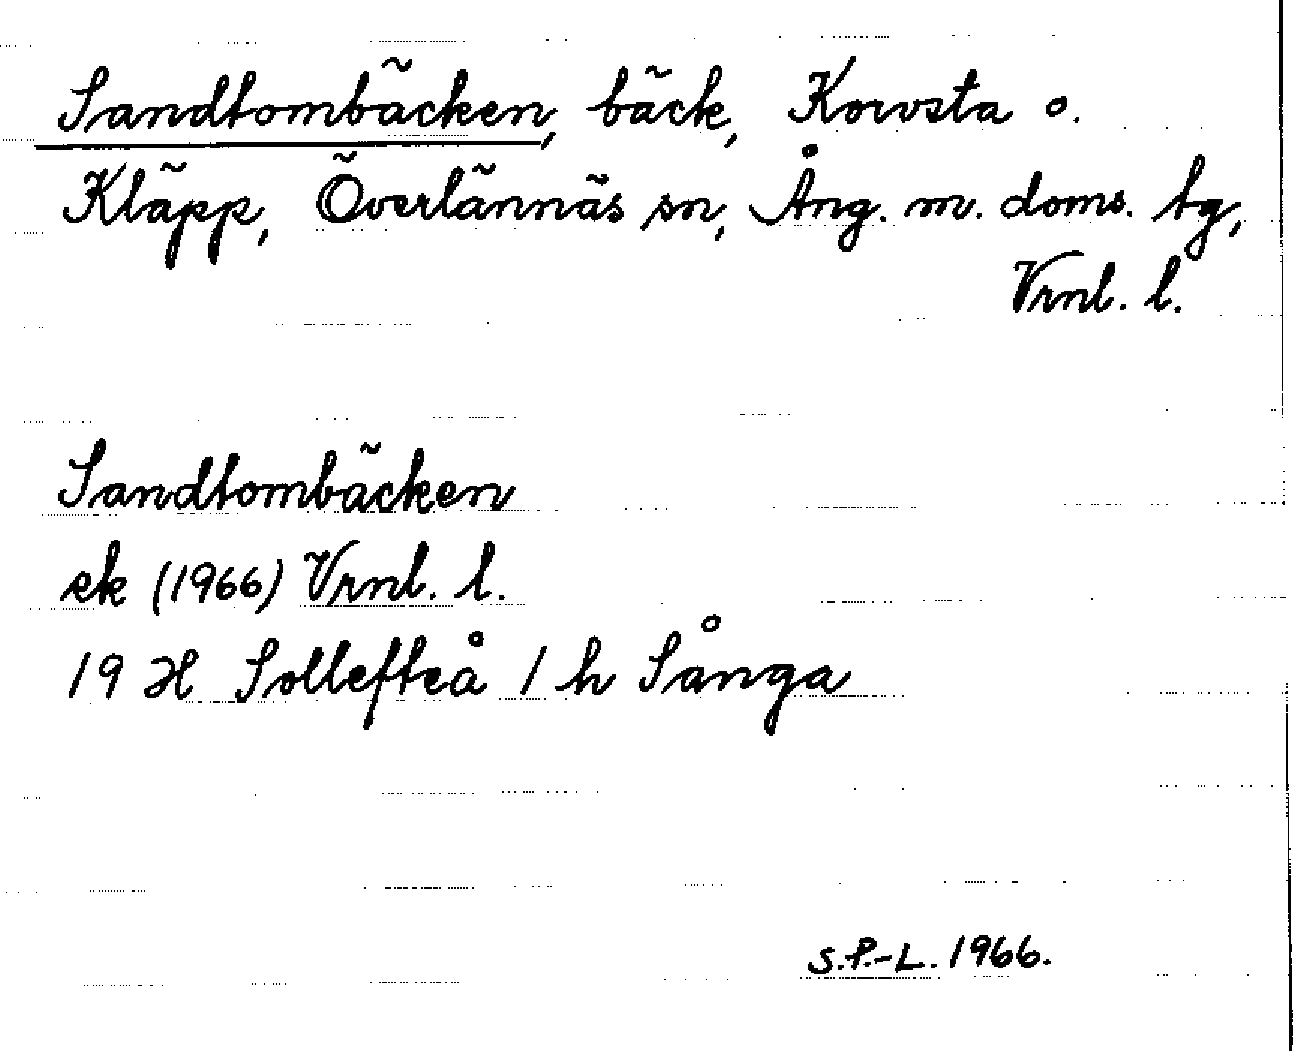 Sandtombäcken, bäck, Korvsta o.
Kläpp, Överlännäs sn, Ång. m. doms. tg,
Vrnl. l.
Sandtombäcken
ek (1966) Vrnl. l.
19 H Sollefteå 1 h Sånga
S.P.-L. 1966.